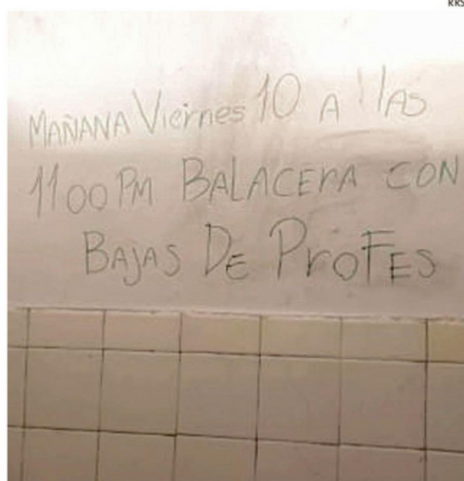 KKS
MAÑANA Viernes 10 A llAS
1100 PM BALACERA CON
BAJAS DE PROFES